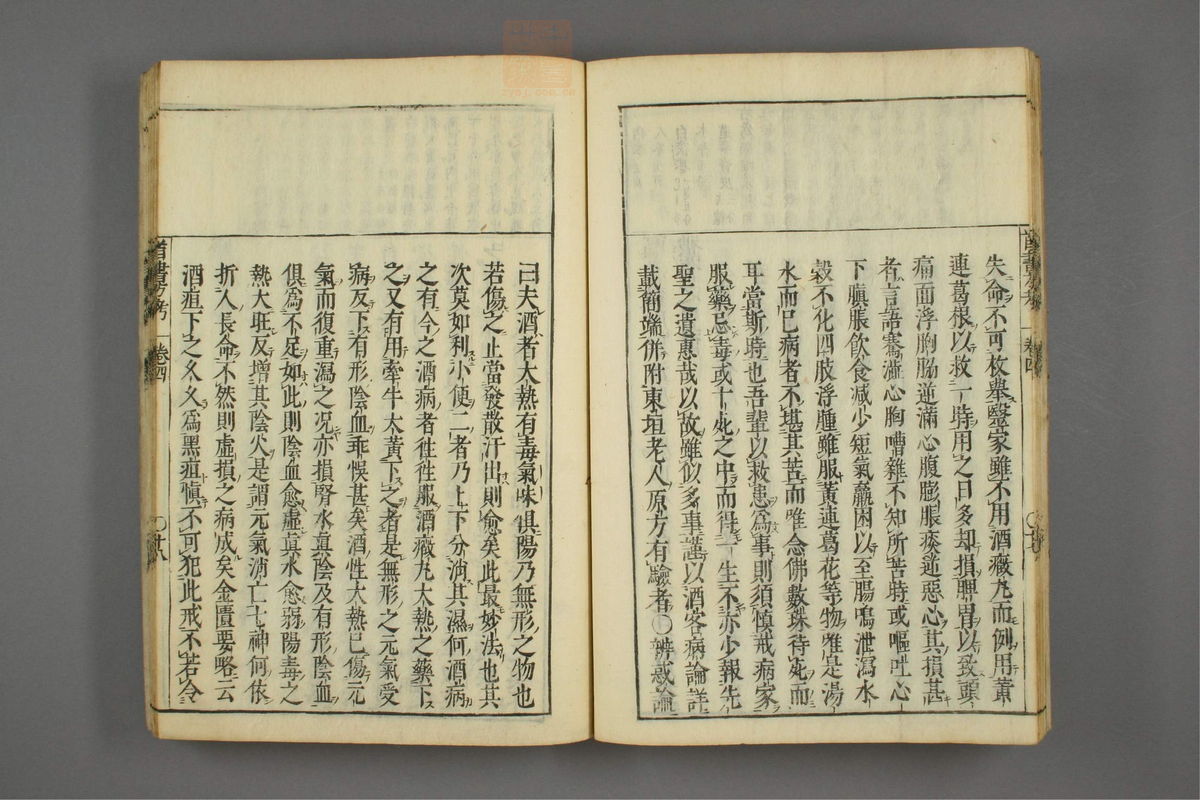 失命不可枚舉毉家雖不用酒癥丸而例用黃
連葛根以救一時用之日多却損脾胃以致頭
痛面浮胸脇逆滿心腹膨脹痰逆惡心其損甚
者言語蹇澁心胸嘈雜不知所苦時或嘔吐心
下䐜脹飲食减少短氣羸困以至腸鳴泄瀉水
穀不化四肢浮腫雖服黃連葛花等物唯是湯
水而已病者不堪其苦而唯念佛數珠待死而
耳當斯時也吾輩以救患爲事則須愼戒病家
服藥忌毒或十死之中而得一生不亦少報先
聖之遺惠哉以故雖似多事謹以酒客病論詳
載簡端併附東垣老人原方有驗者〇辨惑論
曰夫酒者大熱有毒氣味俱陽乃無形之物也
若傷之止當發散汗出則愈矣此最妙法也其
次莫如利小便二者乃上下分消其濕何酒病
之有今之酒病者徃徃服酒癥丸大熱之藥下
之又有用牽牛大黃下之者是無形之元氣受
病反下有形陰血乖悞甚矣酒性大熱已傷元
氣而復重瀉之况亦損腎水眞陰及有形陰血
俱爲不足如此則陰血愈虛眞水愈弱陽毒之
熱大旺反增其陰火是謂元氣消亡七神何依
折人長命不然則虛損之病成矣金匱要略云
酒疸下之久久爲黑疸愼不可犯此戒不若令
卷四
〇廿八